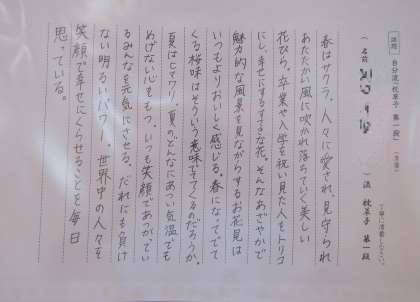 課題 自分流「枕草子 第一段」(清書)
丁寧に清書しなさい。
(名前 )流 枕草子 第一段
春はサクラ。人々に愛され、見守られ
あたたかい風に吹かれ落ちていく美しい
花びら。卒業や入学を祝い見た人をトリコ
にし、幸せにするすてきな花。そんなあざやかで
魅力的な風景を見ながらするお花見は
いつもよりおいしく感じる。春になってでて
くる桜味はそういう意味ででてくるのだろうか。
夏はヒマワリ。夏のどんなにあつい気温でも
めげない心をもつ。いつも笑顔であつかってい
るみんなを元気にさせる。だれにも負け
ない明るいパワー。世界中の人々を
笑顔で幸せにくらせることを毎日
思っている。